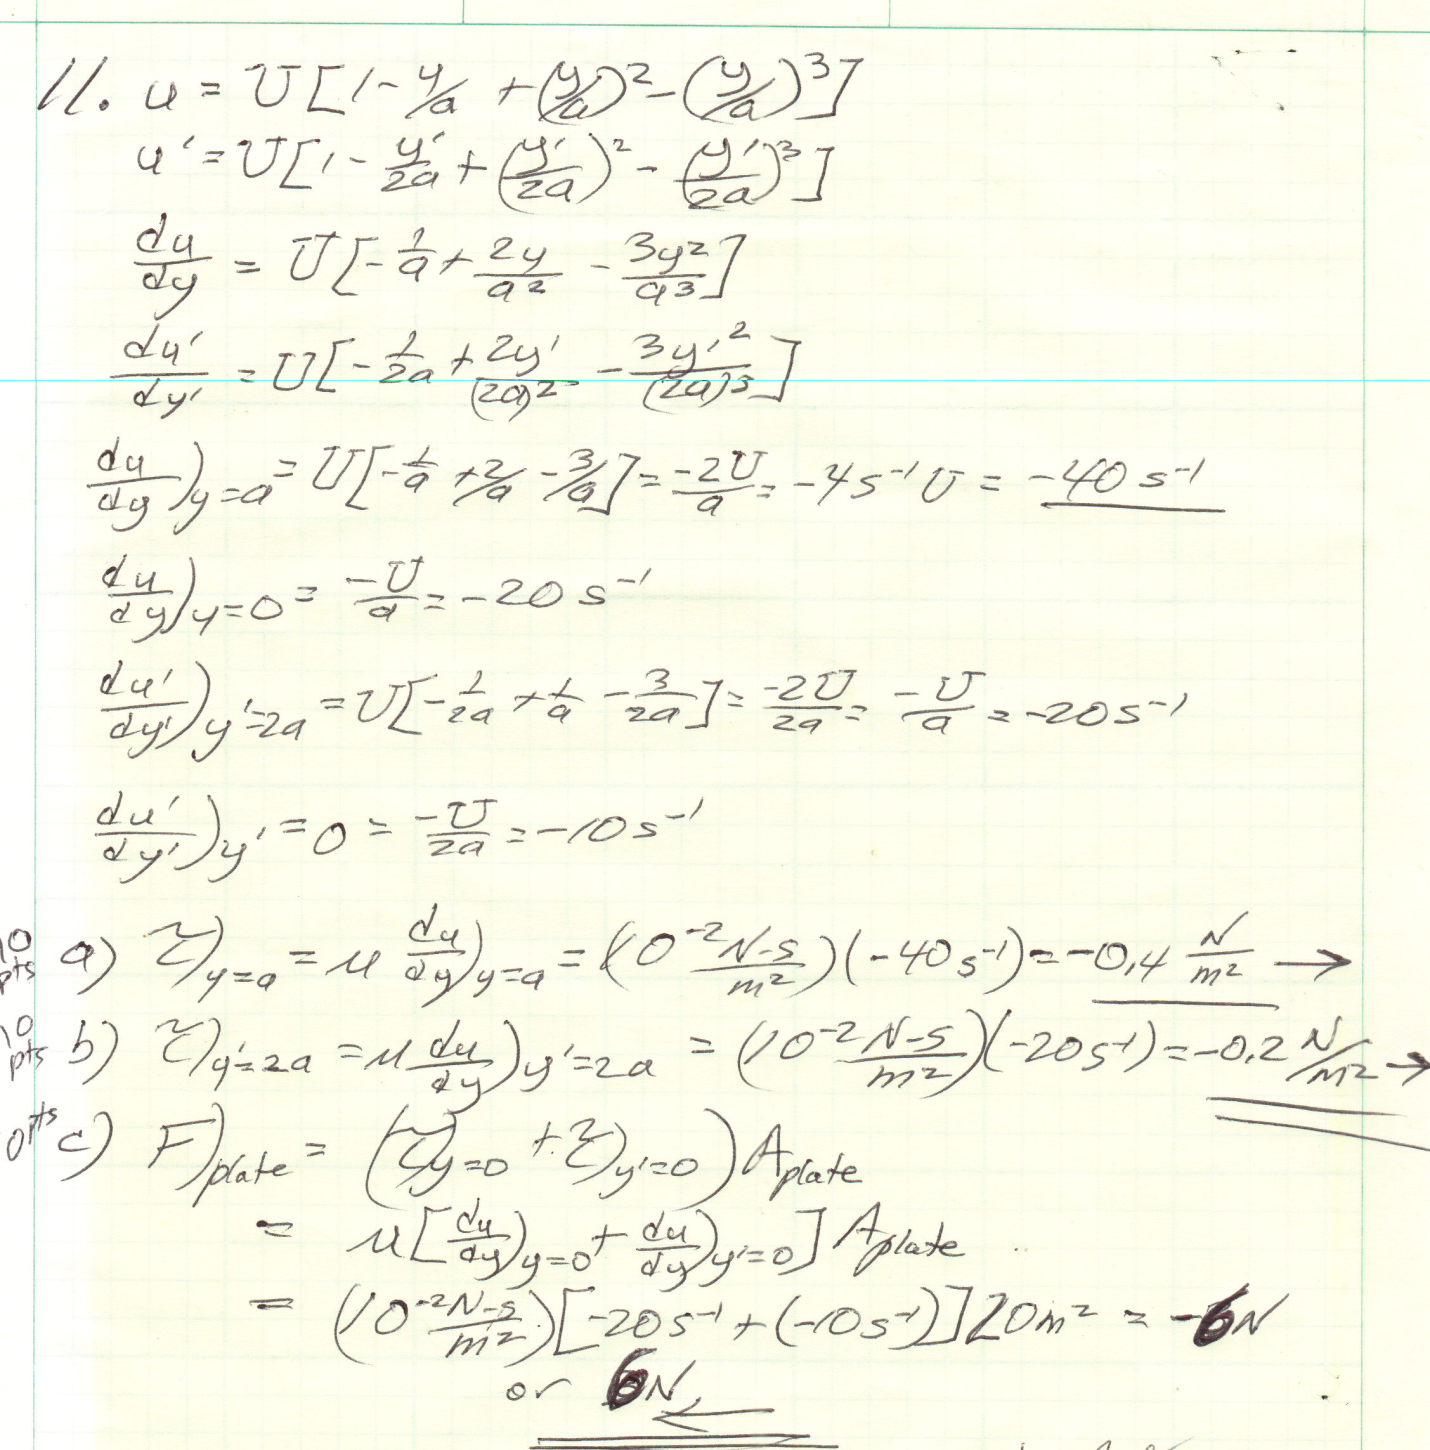 11. u = U[1 - y/a + (y/a)² - (y/a)³]
u' = U[1 - y'/2a + (y'/2a)² - (y'/2a)³]
du/dy = U[-1/a + 2y/a² - 3y²/a³]
du'/dy' = U[-1/2a + 2y'/(2a)² - 3y'²/(2a)³]
du/dy)y=a = U[-1/a + 2/a - 3/a] = -2U/a = -4s⁻¹ U = -40 s⁻¹
du/dy)y=0 = -U/a = -20 s⁻¹
du'/dy')y'=2a = U[-1/2a + 1/a - 3/2a] = -2U/2a = -U/a = -20 s⁻¹
du'/dy')y'=0 = -U/2a = -10 s⁻¹
10 pts a) τ)y=a = μ du/dy)y=a = (10⁻² N-s/m²)(-40 s⁻¹) = -0,4 N/m² →
10 pts b) τ)y'=2a = μ du/dy)y'=2a = (10⁻² N-s/m²)(-20 s⁻¹) = -0.2 N/m² →
0 pts c) F)plate = (τ)y=0 + τ)y'=0) Aplate
= μ[du/dy)y=0 + du/dy)y'=0] Aplate
= (10⁻² N-s/m²)[-20 s⁻¹ + (-10 s⁻¹)] 20 m² = -6N
or 6N ←